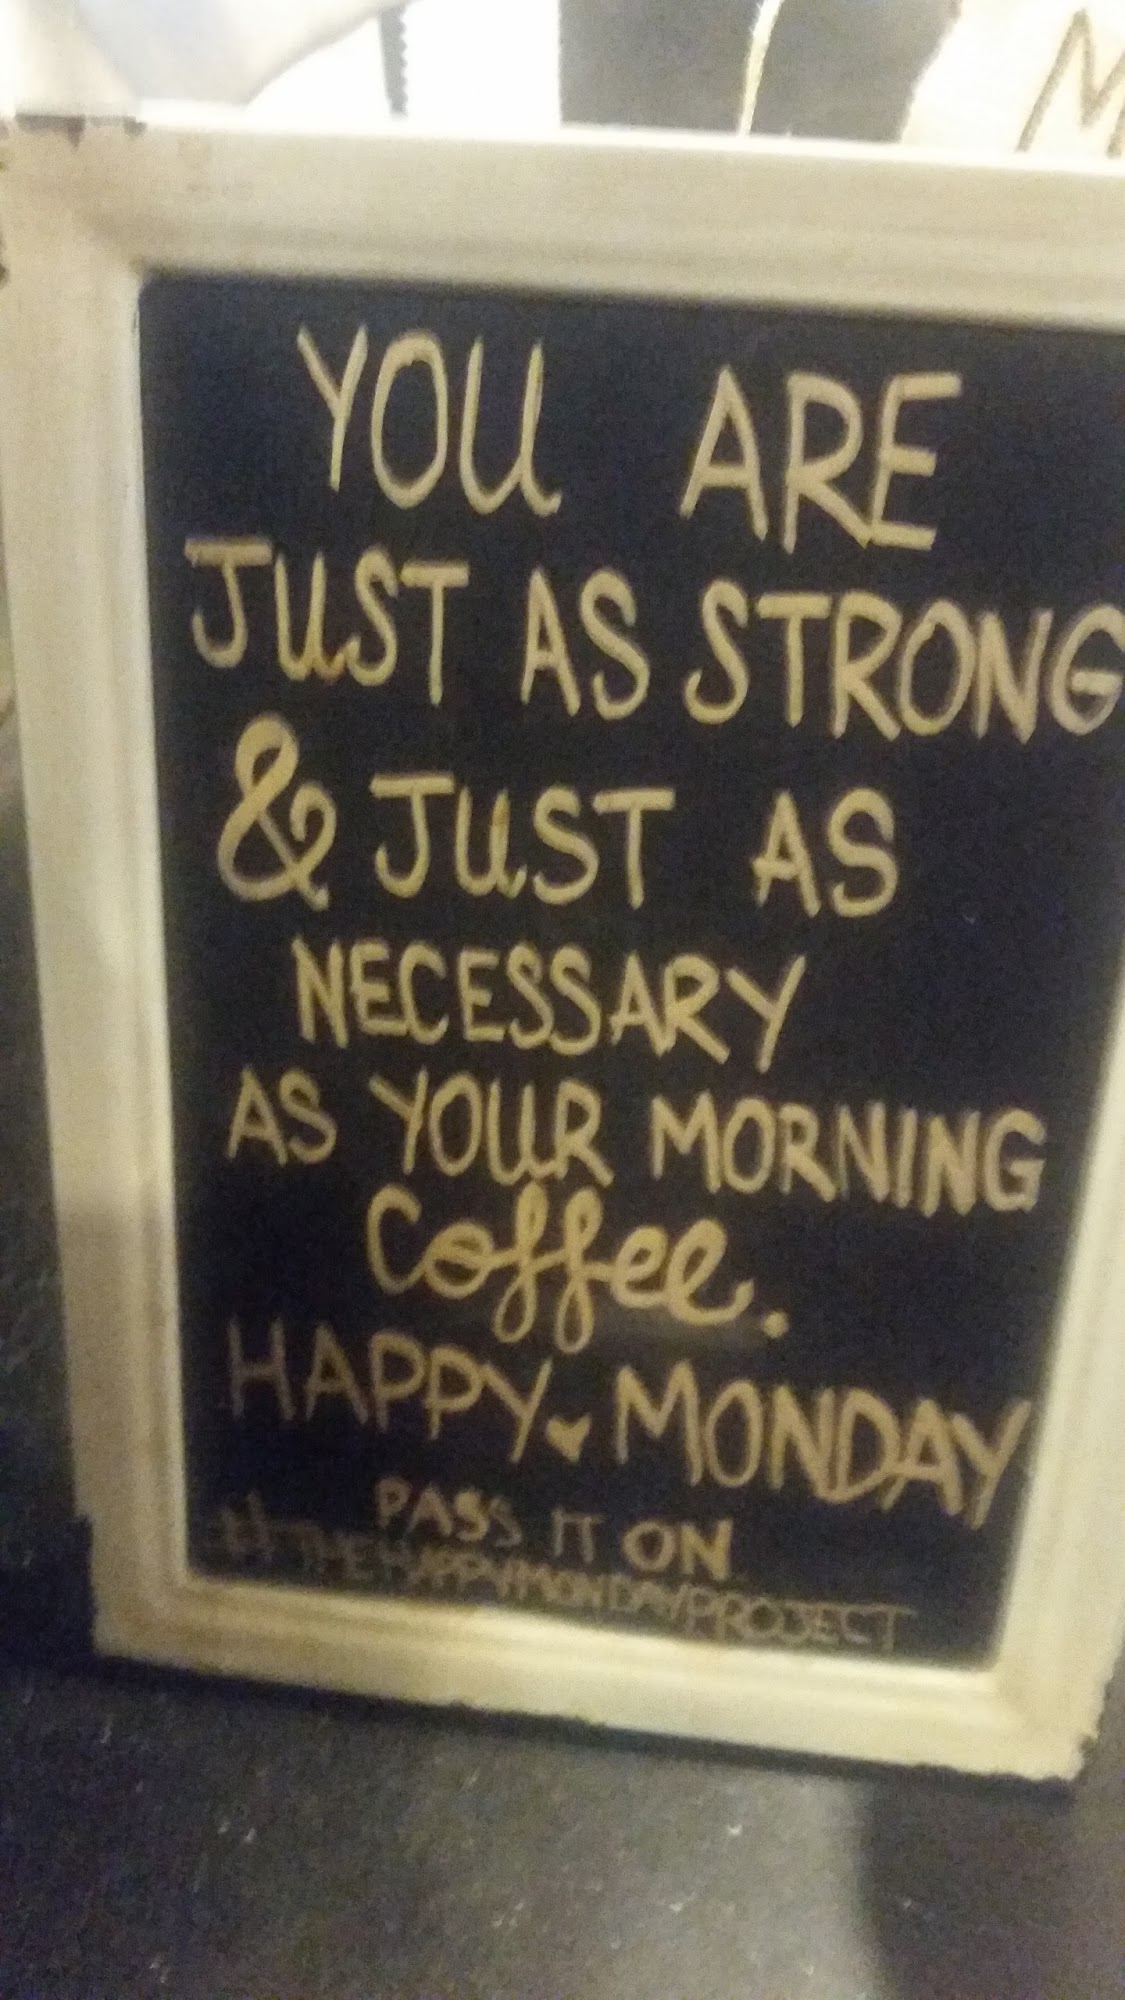 M
YOU ARE
JUST AS STRONG
& JUST AS
NECESSARY
AS YOUR MORNING
Coffee.
HAPPY MONDAY
PASS IT ON
#THEHAPPYMONDAYPROJECT